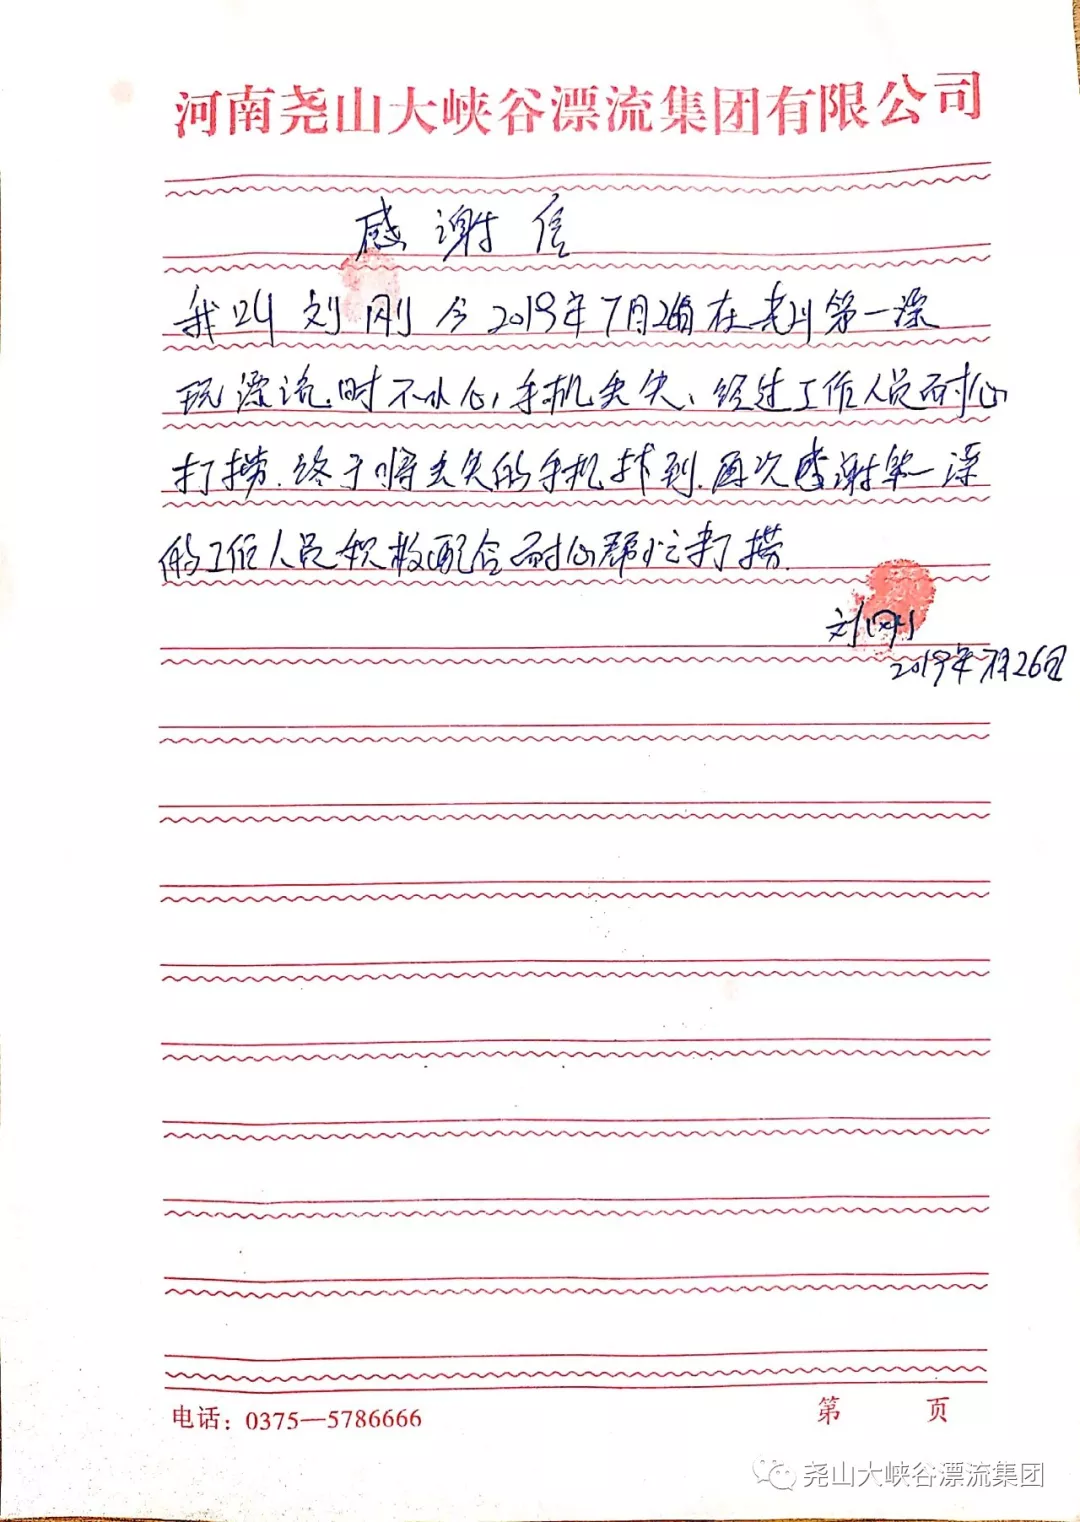 河南尧山大峡谷漂流集团有限公司
感谢信
我叫刘刚今2019年7月26日在尧山第一漂
玩漂流.时不小心,手机丢失、经过工作人员耐心
打捞.终于将丢失的手机找到.再次感谢第一漂
的工作人员积极配合耐心打捞.
刘刚
2019年7月26日
电话：0375—5786666
第 页
尧山大峡谷漂流集团